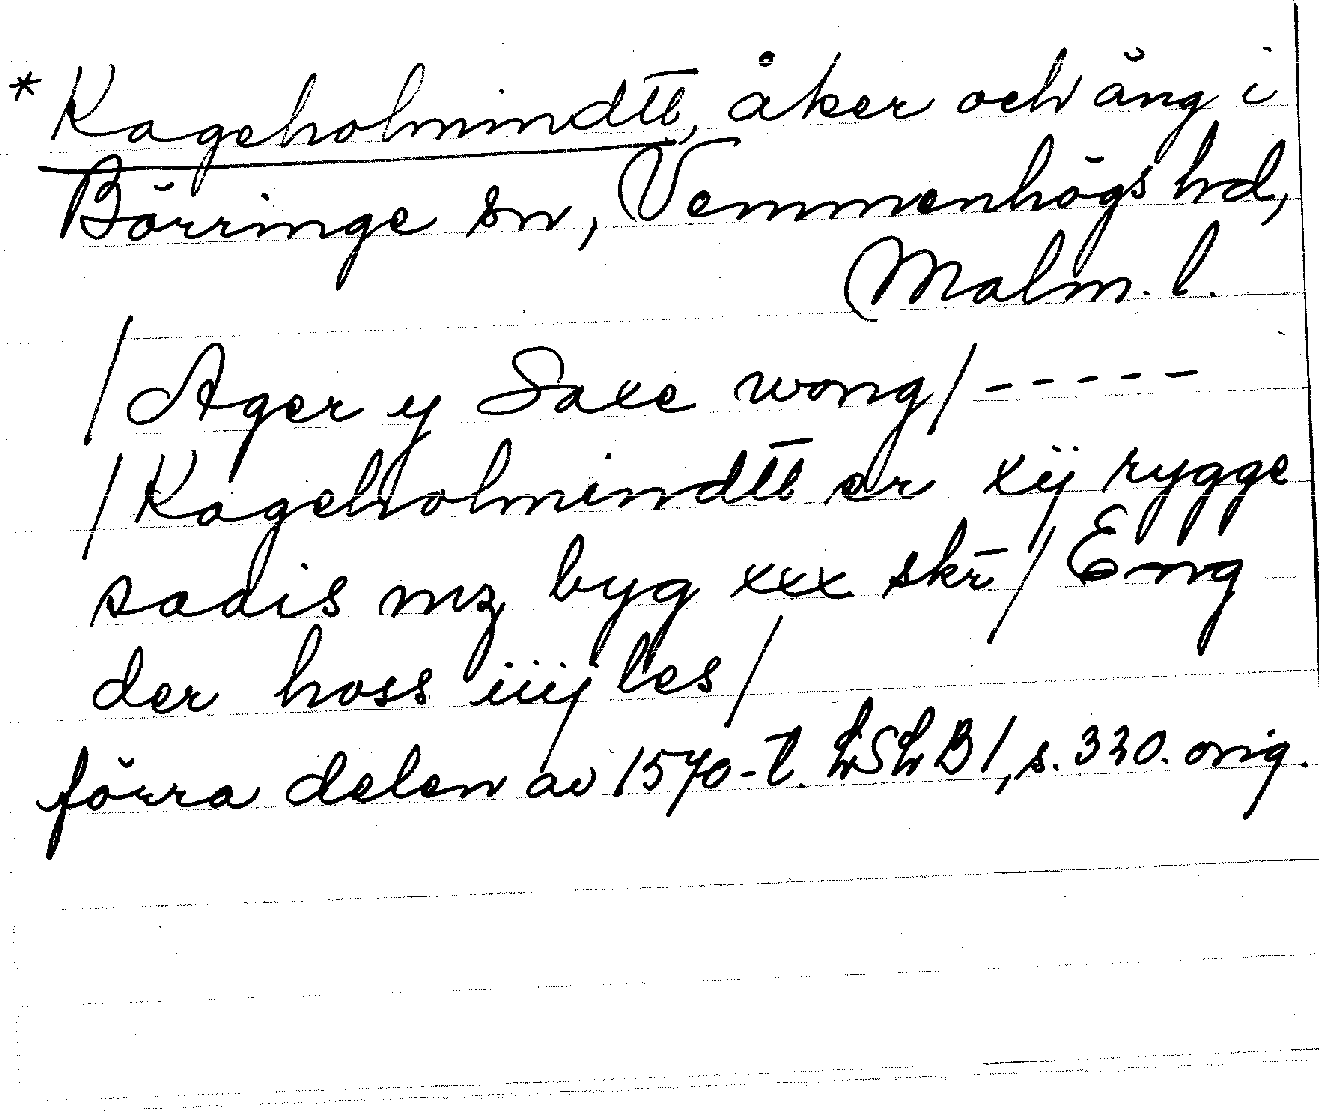 * Kageholmindtt, åker och äng i
Börringe sn, Vemmenhögs hd,
Malm. l.
/Ager y Saxe wong/-----
/Kageholmindtt er xij rygge
sadis mz byg xxx skr̄/ Eng
der hoss iiij les/
förra delen av 1570-t. LSLB1, s. 330. orig.